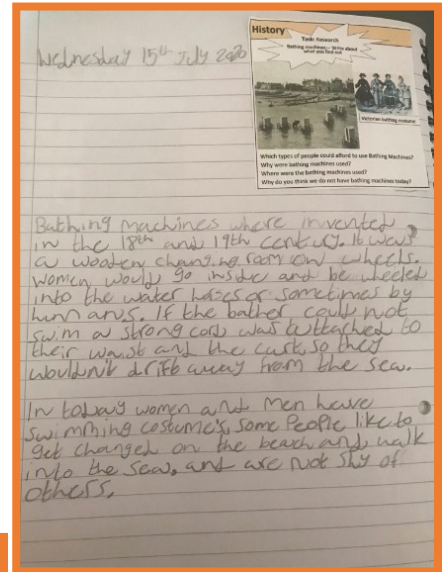 Wednesday 15th July 2020
History
Task: Research
Bathing machines - Write about
what you find out
Victorian bathing costume
Which types of people could afford to use Bathing Machines?
Why were bathing machines used?
Where were the bathing machines used?
Why do you think we do not have bathing machines today?
Bathing machines where invented
in the 18th and 19th century. It was
a wooden changing room on wheels.
Women would go inside and be wheeled
into the water or sometimes by
humans. If the bather could not
swim a strong cord was attached to
their waist and the cart, so they
wouldn't drift away from the sea.
In today women and men have
swimming costume's, some People like to
get changed on the beach and walk
into the sea, and are not shy of
others.